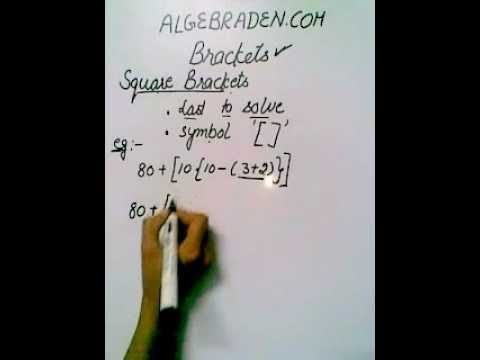 ALGEBRADEN.COM
Brackets ✓
Square Brackets
• Last to solve
• symbol '[ ]'
eg:-
80 + [10{10-(3+2)}]
80 + [